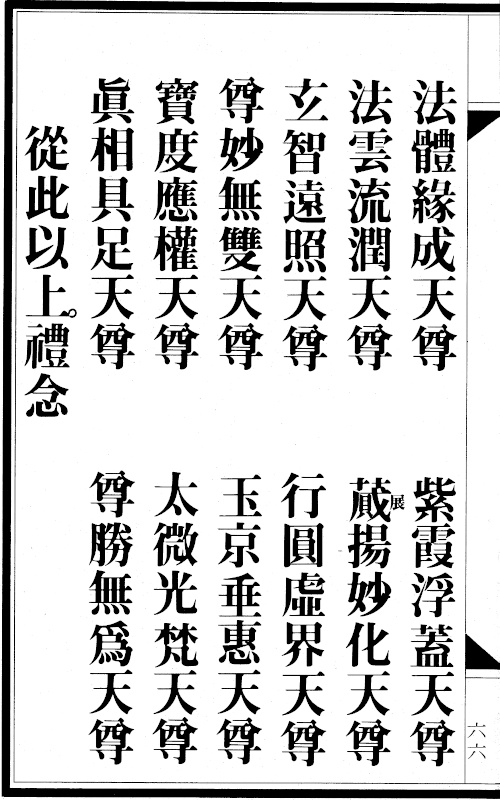 法體緣成天尊　紫霞浮蓋天尊
法雲流潤天尊　蕆展揚妙化天尊
玄智遠照天尊　行圓虛界天尊
尊妙無雙天尊　玉京垂惠天尊
寶度應權天尊　太微光梵天尊
眞相具足天尊　尊勝無爲天尊
從此以上。禮念
六六